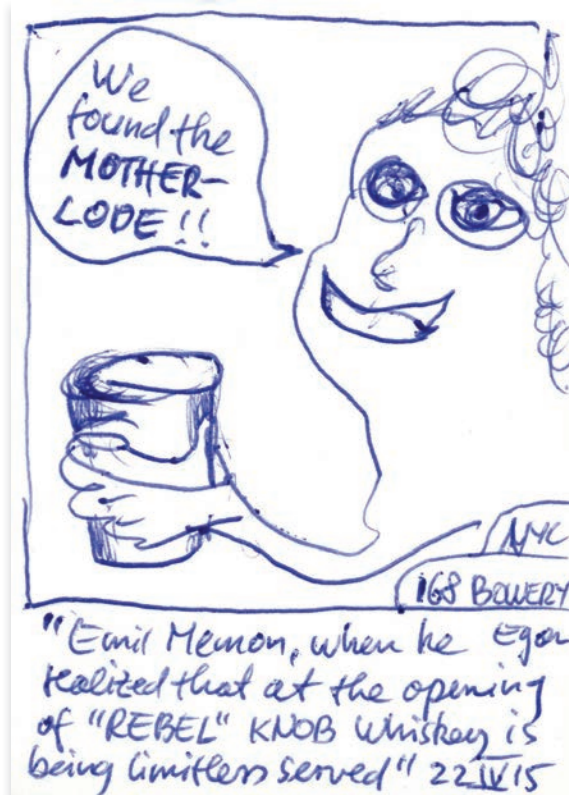 We
found the
MOTHER-
LODE!!
NYC
168 BOWERY
"Emil Memon, when he Egon
realized that at the opening
of "REBEL" KNOB Whiskey is
being limitless served" 22 IV 15